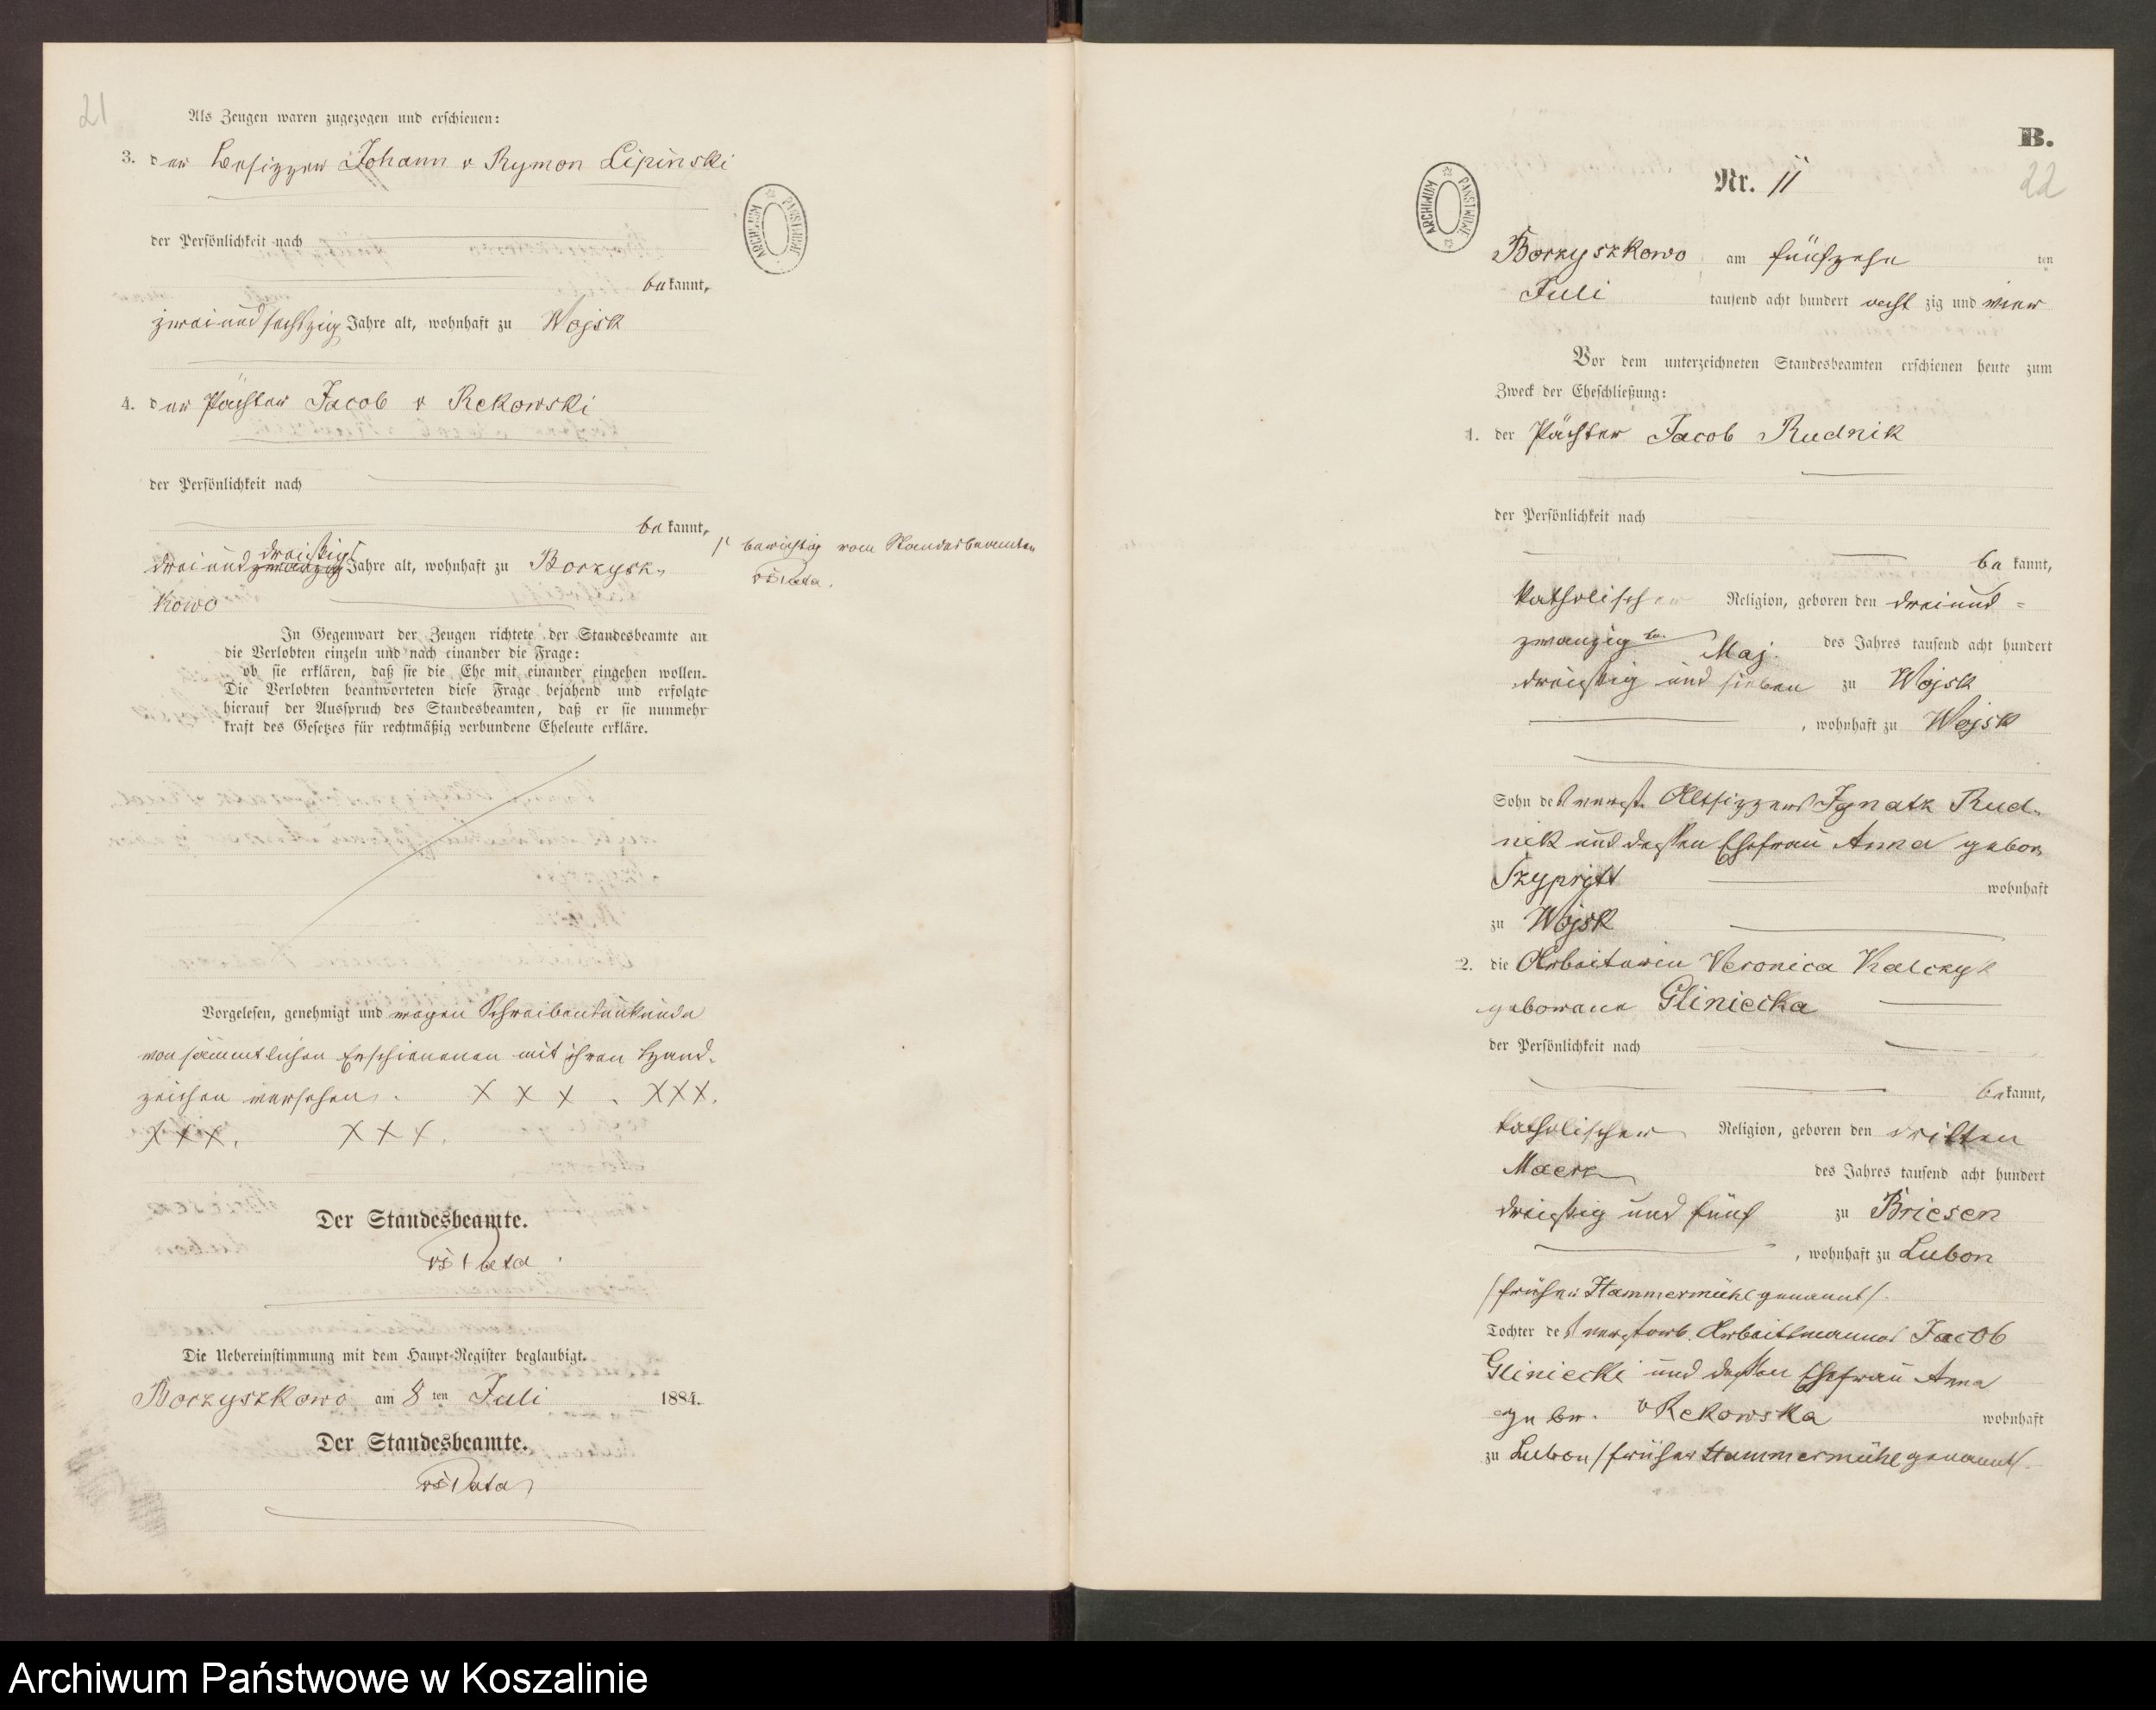 21
Als Zeugen waren zugezogen und erschienen:
3. der Besitzer Johann v Rymon Lipinski
der Persönlichkeit nach
be kannt,
zweiundsechszig Jahre alt, wohnhaft zu Wojsk
4. der Pächter Jacob v Rekowski
der Persönlichkeit nach
be kannt,
dreißig
dreiundzwanzig Jahre alt, wohnhaft zu Borzysz-
kowo
berichtig vom Standesbeamten
In Gegenwart der Zeugen richtete der Standesbeamte an
die Verlobten einzeln und nach einander die Frage:
ob sie erklären, daß sie die Ehe mit einander eingehen wollen.
Die Verlobten beantworteten diese Frage bejahend und erfolgte
hierauf der Ausspruch des Standesbeamten, daß er sie nunmehr
kraft des Gesetzes für rechtmäßig verbundene Eheleute erkläre.
Vorgelesen, genehmigt und wegen Schreibensunkunde
von sämmtlichen Erschienenen mit ihren Hand-
zeichen versehen. X X X . XXX.
XXX. XXX.
Der Standesbeamte.
Die Uebereinstimmung mit dem Haupt-Register beglaubigt.
Borzyszkowo am 8 ten Juli 1884.
Der Standesbeamte.
ARCHIWUM PAŃSTWOWE
B.
Nr. 11
22
ARCHIWUM PAŃSTWOWE
Borzyszkowo am fünfzehn ten
Juli tausend acht hundert acht zig und vier
Vor dem unterzeichneten Standesbeamten erschienen heute zum
Zweck der Eheschließung:
1. der Pächter Jacob Rudnik
der Persönlichkeit nach
be kannt,
katholischer Religion, geboren den dreiund=
zwanzig ten Maj. des Jahres tausend acht hundert
dreißig und sieben zu Wojsk
, wohnhaft zu Wojsk
Sohn des verst. Altsitzers Ignatz Rud-
nik und dessen Ehefrau Anna gebor,
wohnhaft
zu Wojsk
2. die Arbeiterin Veronica Kalczyk
geborene Gliniecka
der Persönlichkeit nach
be kannt,
katholischer Religion, geboren den dritten
Maerz des Jahres tausend acht hundert
dreißig und fünf zu Briesen
, wohnhaft zu Lubon
/früher Hammermühl genannt/.
Tochter des verstorb. Arbeitsmannes Jacob
Gliniecki und dessen Ehefrau Anna
geb. v Rekowska wohnhaft
zu Lubon /früher Hammermühl genannt/.
Archiwum Państwowe w Koszalinie